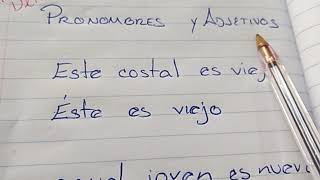 PRONOMBRES Y ADJETIVOS
Este costal es
Éste es viejo
joven es